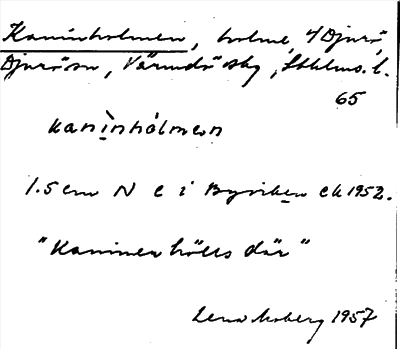 Kaninholmen, holme, Djurö,
Djurö sn, Värmdö skg, Sthlms. l.
65
kanìnhólmen
1.5 cm N e i Byviken ek 1952.
"Kaniner hölls där"
Lena Moberg 1957